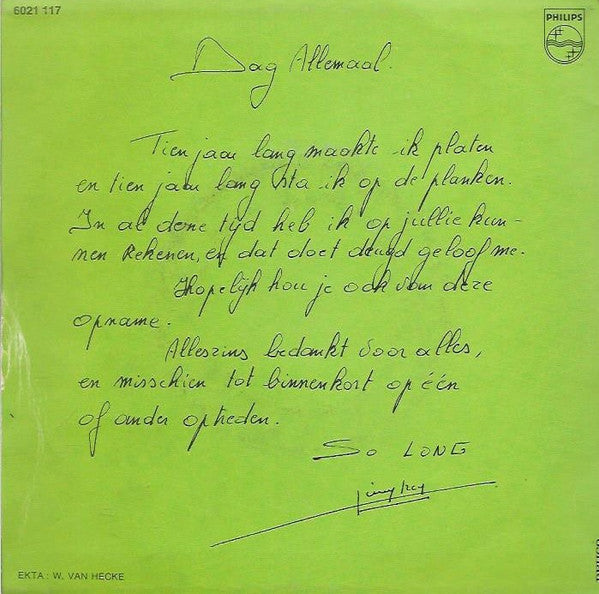 6021 117
PHILIPS
Dag Allemaal.
Tien jaar lang maakte ik platen
en tien jaar lang sta ik op de planken.
In al deze tijd heb ik op jullie kun-
nen Rekenen, en dat doet deugd geloof me.
Hopelijk hou je ook van deze
opname.
Alleszins bedankt voor alles,
en misschien tot binnenkort op één
of ander optreden.
SO LONG
EKTA : W. VAN HECKE